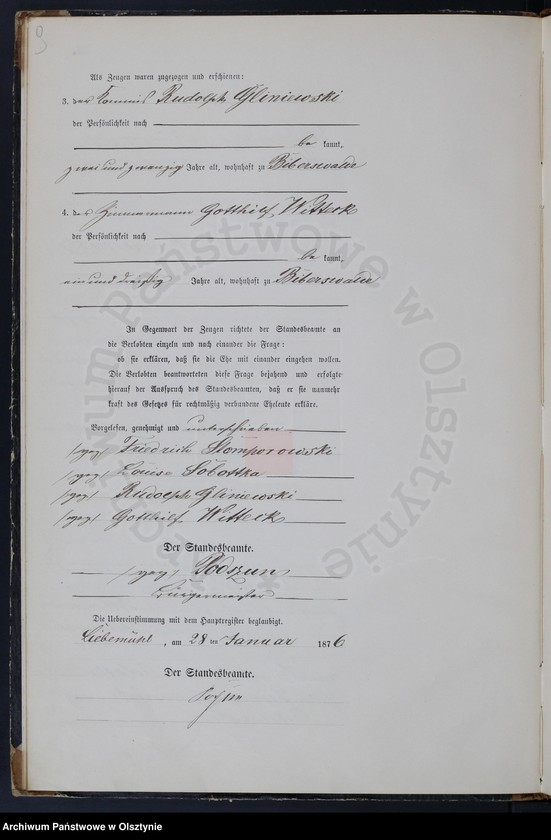 9
Als Zeugen waren zugezogen und erschienen:
3. der Kommis Rudolph Gliniewski
der Persönlichkeit nach
be kannt,
zwei und zwanzig Jahre alt, wohnhaft zu Biberswalde
4. der Zimmermann Gotthilf Witteck
der Persönlichkeit nach
be kannt,
ein und dreißig Jahre alt, wohnhaft zu Biberswalde
In Gegenwart der Zeugen richtete der Standesbeamte an
die Verlobten einzeln und nach einander die Frage:
ob sie erklären, daß sie die Ehe mit einander eingehen wollen.
Die Verlobten beantworteten diese Frage bejahend und erfolgte
hierauf der Ausspruch des Standesbeamten, daß er sie nunmehr
kraft des Gesetzes für rechtmäßig verbundene Eheleute erkläre.
Vorgelesen, genehmigt und unterschrieben
(gez) Friedrich Slomporowski
(gez) Louise Sobottka
(gez) Rudolph Gliniewski
(gez) Gotthilf Witteck
Der Standesbeamte.
(gez) Podszun
Bürgermeister
Die Uebereinstimmung mit dem Hauptregister beglaubigt.
Liebemühl, am 28 ten Januar 1876
Der Standesbeamte.
Archiwum Państwowe w Olsztynie
Archiwum Państwowe w Olsztynie